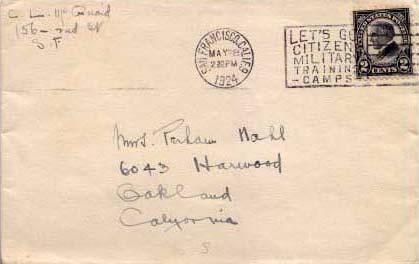 C. L. McQuaid
156 - 2nd St
S. F
SAN FRANCISCO, CALIF.
MAY 8
2 30 PM
1924
LET'S GO
CITIZENS
MILITARY
TRAINING
CAMPS
2 CENTS 2
Mrs. Perham Nahl
6043 Harwood
Oakland
California